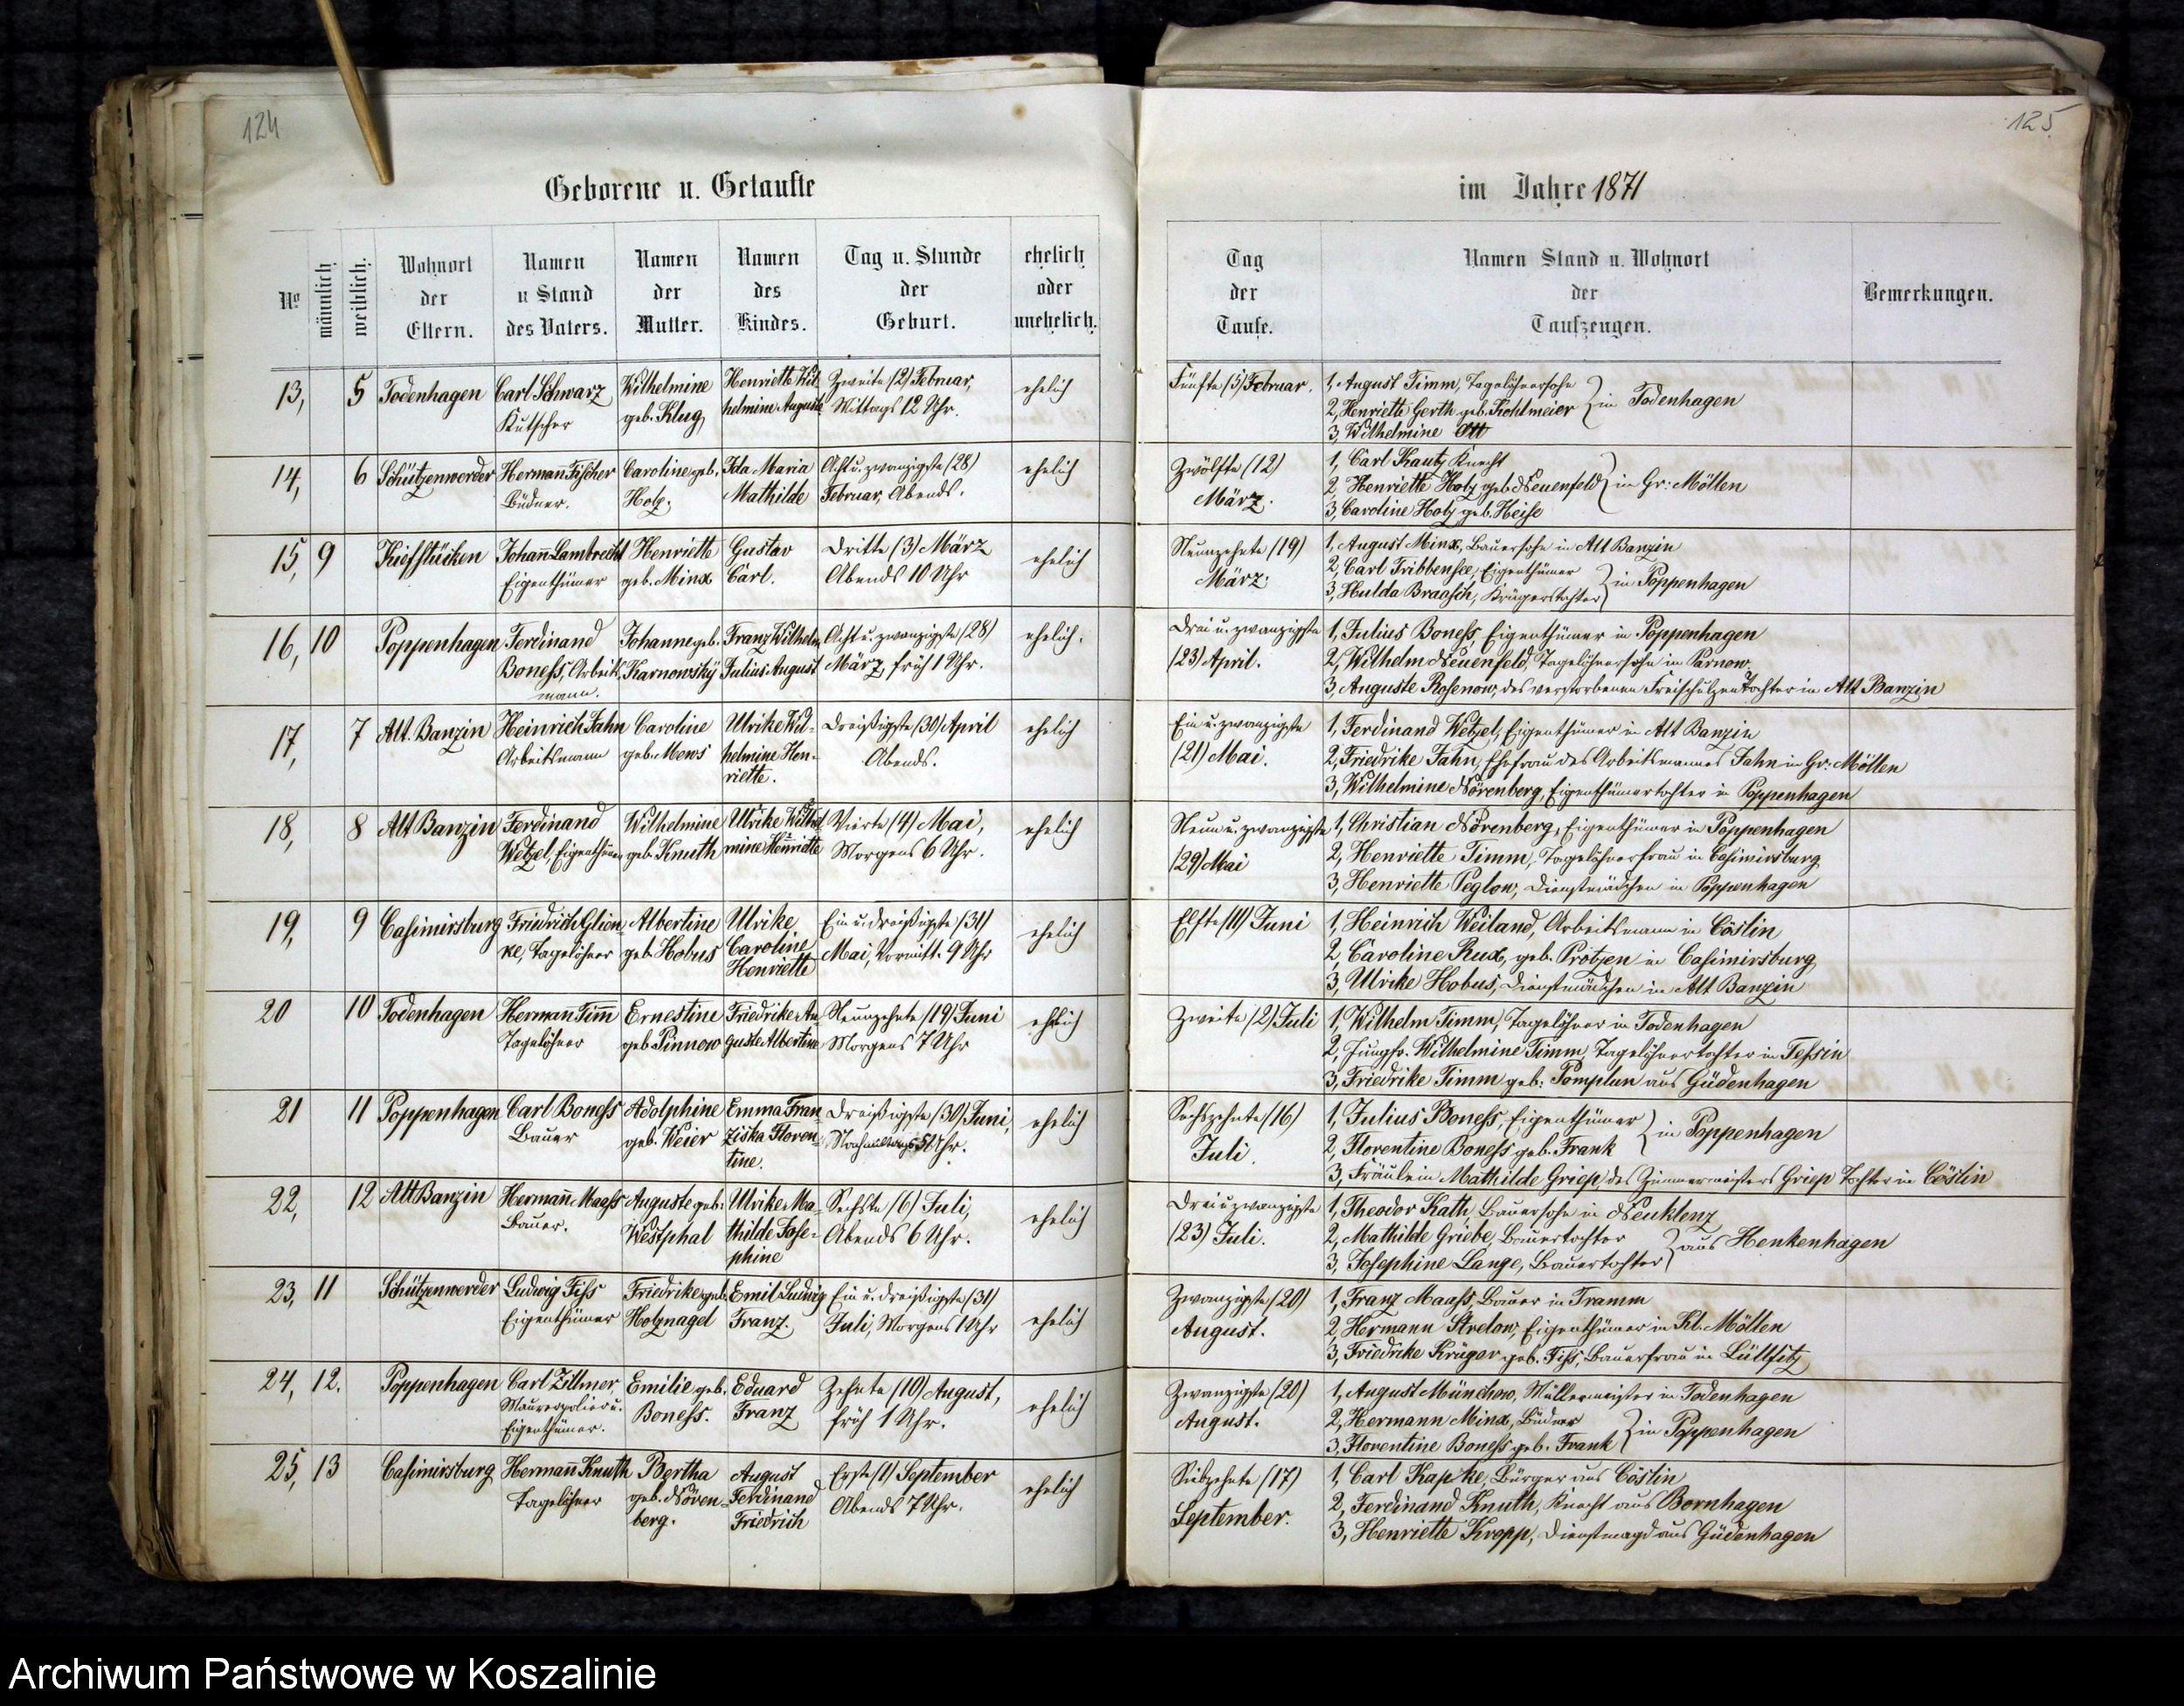 124
Geborene u. Getaufte
No
männlich
weiblich.
Wohnort
der
Eltern.
Namen
u Stand
des Vaters.
Namen
der
Mutter.
Namen
des
Kindes.
Tag u. Stunde
der
Geburt.
ehelich
oder
unehelich.
13,
5
Todenhagen
Carl Schwarz
Kutscher
Wilhelmine
geb. Klug
Henriette Wil-
helmine Auguste
Zweite (2) Februar,
Mittags 12 Uhr.
ehelich
14,
6
Schützenwerder
Hermann Fischer
Büdner.
Caroline geb.
Holz.
Ida Maria
Mathilde
Acht u. zwanzigste (28)
Februar, Abends.
ehelich
15,
9
Kiefstücken
Johann Lambrecht
Eigenthümer
Henriette
geb. Minx
Gustav
Carl.
Dritte (3) März
Abends 10 Uhr
ehelich
16,
10
Poppenhagen
Ferdinand
Boness, Arbeits
mann.
Johanne geb.
Karnowsky
Franz Wilhelm
Julius August
Acht u. zwanzigste (28)
März, früh 1 Uhr.
ehelich.
17,
7
Alt. Banzin
Heinrich Jahn
Arbeitsmann
Caroline
geb. Mews
Ulrike Wil-
helmine Hen-
riette.
Dreißigste (30) April
Abends.
ehelich
18,
8
Alt Banzin
Ferdinand
Wetzel, Eigenthümer
Wilhelmine
geb. Knuth
Ulrike Wilhel
mine Henriette
Vierte (4) Mai,
Morgens 6 Uhr.
ehelich
19,
9
Casimirsburg
Friedrich Glien
ke, Tagelöhner
Albertine
geb. Hobus
Ulrike
Caroline
Henriette
Ein u. dreißigste (31)
Mai, Vormitt. 9 Uhr
ehelich
20
10
Todenhagen
Hermann Timm
Tagelöhner
Ernestine
geb. Pinnow
Friedrike Au-
guste Albertine
Neunzehnte (19) Juni
Morgens 7 Uhr
ehelich
21
11
Poppenhagen
Carl Boness
Bauer
Adolphine
geb. Weier
Emma Fran
ziska Floren-
tine.
Dreißigste (30) Juni,
Nachmittags 5 Uhr.
ehelich
22,
12
Alt Banzin
Hermann Maass
Bauer.
Auguste geb.
Westphal
Ulrike Ma-
thilde Jose-
phine
Sechste (6) Juli,
Abends 6 Uhr.
ehelich
23,
11
Schützenwerder
Ludwig Fiss
Eigenthümer
Friedrike geb.
Holznagel
Emil Ludwig
Franz.
Ein u. dreißigste (31)
Juli, Morgens 1 Uhr
ehelich
24,
12.
Poppenhagen
Carl Zillmer
Maurerpolier u.
Eigenthümer.
Emilie geb.
Boness.
Eduard
Franz
Zehnte (10) August,
früh 1 Uhr.
ehelich
25,
13
Casimirsburg
Hermann Knuth
Tagelöhner
Bertha
geb. Nören-
berg.
August
Ferdinand
Friedrich
Erste (1) September
Abends 7 Uhr.
ehelich
125.
im Jahre 1871
Tag
der
Taufe.
Namen Stand u. Wohnort
der
Taufzeugen.
Bemerkungen.
Fünfte (5) Februar.
1, August Timm, Tagelöhnersohn
2, Henriette Gerth geb. Kohlmeier } in Todenhagen
3, Wilhelmine Ott
Zwölfte (12)
März.
1, Carl Kautz Knecht
2, Henriette Holz geb. Neuenfeld } in Gr: Möllen
3, Caroline Holz geb. Heise
Neunzehnte (19)
März.
1, August Minx, Bauersohn in Alt Banzin
2, Carl Tribbensee, Eigenthümer
3, Hulda Braasch, Krügerstochter } in Poppenhagen
Drei u. zwanzigste
(23) April.
1, Julius Boness, Eigenthümer in Poppenhagen
2, Wilhelm Neuenfeld, Tagelöhnersohn in Parnow.
3, Auguste Rosenow, des verstorbenen Freischulzen Tochter in Alt Banzin
Ein u. zwanzigste
(21) Mai.
1, Ferdinand Wetzel, Eigenthümer in Alt Banzin
2, Friedrike Jahn, Ehefrau des Arbeitsmannes Jahn in Gr: Möllen
3, Wilhelmine Nörenberg, Eigenthümertochter in Poppenhagen
Neun u. zwanzigste
(29) Mai
1, Christian Nörenberg, Eigenthümer in Poppenhagen
2, Henriette Timm, Tagelöhnerfrau in Casimirsburg
3, Henriette Peglow, Dienstmädchen in Poppenhagen
Elfte (11) Juni
1, Heinrich Weiland, Arbeitsmann in Cöslin
2, Caroline Rux, geb. Prötzen in Casimirsburg
3, Ulrike Hobus, Dienstmädchen in Alt Banzin
Zweite (2) Juli
1, Wilhelm Timm, Tagelöhner in Todenhagen
2, Jungfr. Wilhelmine Timm, Tagelöhnertochter in Tessin
3, Friedrike Timm geb. Pomplun aus Güdenhagen
Sechszehnte (16)
Juli.
1, Julius Boness, Eigenthümer
2, Florentine Boness geb. Frank } in Poppenhagen
3, Fräulein Mathilde Griep, des Zimmermeisters Griep Tochter in Cöslin
Drei u zwanzigste
(23) Juli.
1, Theodor Kath, Bauersohn in Neuklenz
2, Mathilde Griebe, Bauertochter
3, Josephine Lange, Bauertochter } aus Henkenhagen
Zwanzigste (20)
August.
1, Franz Maass, Bauer in Tramm
2, Hermann Strelow, Eigenthümer in Kl. Möllen
3, Friedrike Krüger geb. Fiss, Bauerfrau in Lüllfitz
Zwanzigste (20)
August.
1, August Münchow, Müllermeister in Todenhagen
2, Hermann Minx, Büdner
3, Florentine Boness geb. Frank } in Poppenhagen
Siebzehnte (17)
September.
1, Carl Kapke, Bürger aus Cöslin
2, Ferdinand Knuth, Knecht aus Bornhagen
3, Henriette Kropp, Dienstmagd aus Güdenhagen
Archiwum Państwowe w Koszalinie